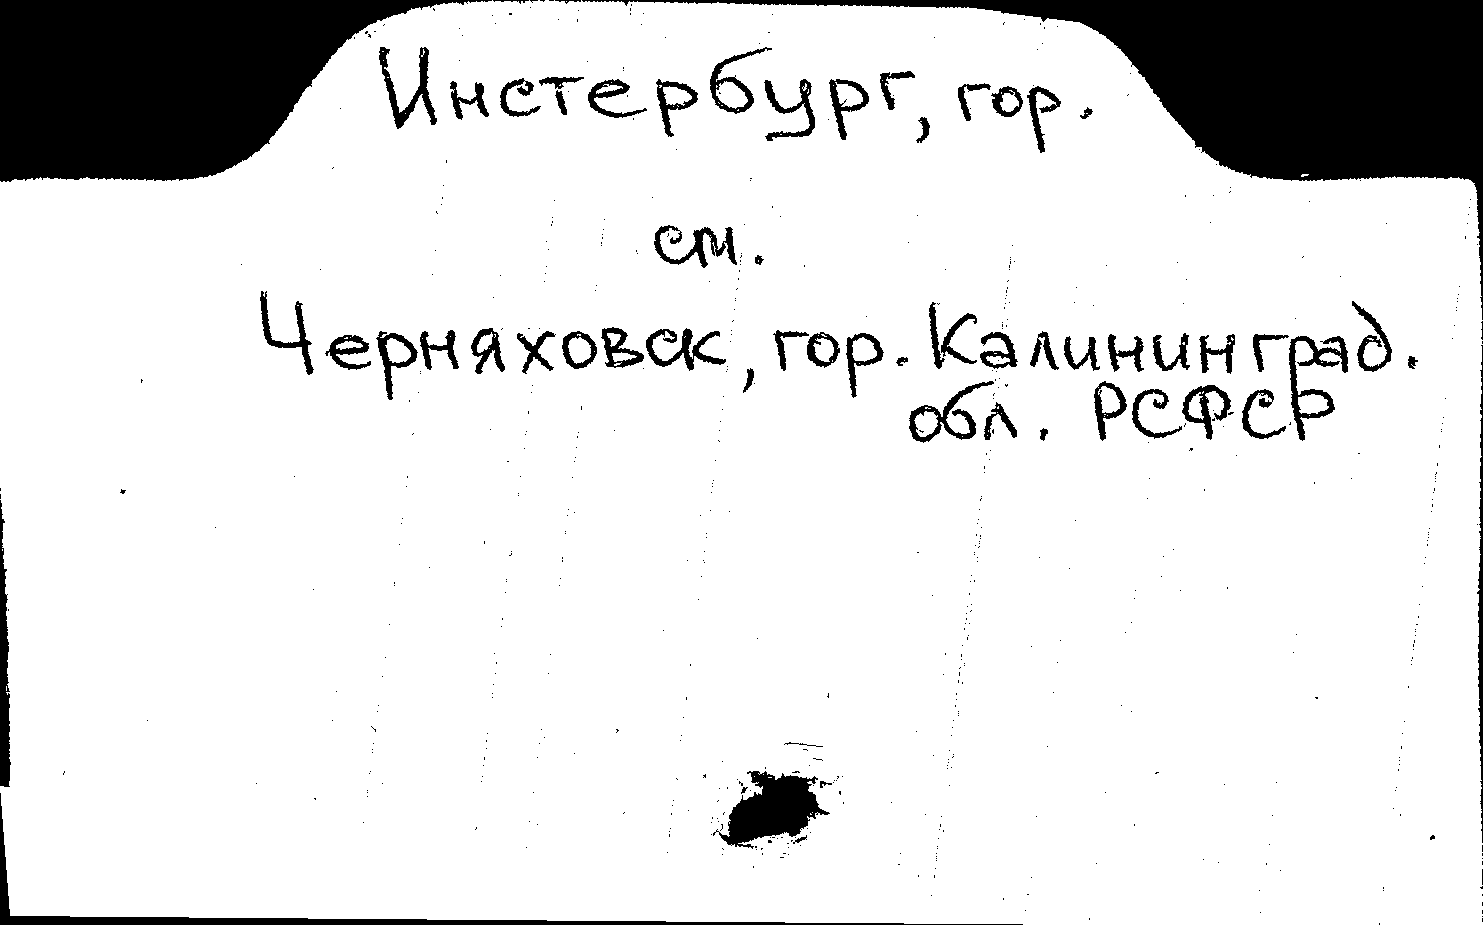 Инстербург, гор.
см.
Черняховск, гор. Калининград.
обл. РСФСР